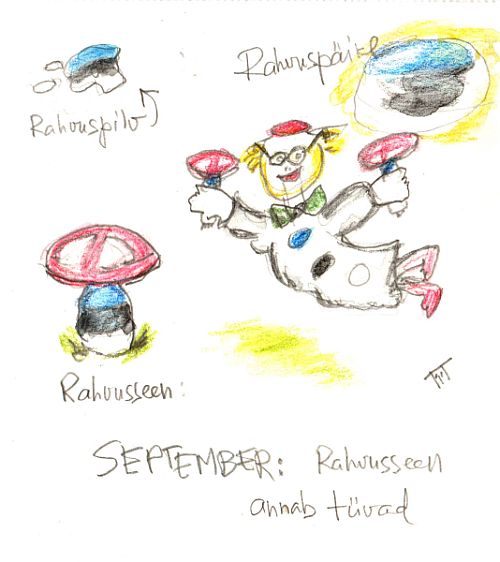 Rahvuspäike
Rahvuspilv
Rahvusseen:
SEPTEMBER: Rahvusseen
annab tüvad